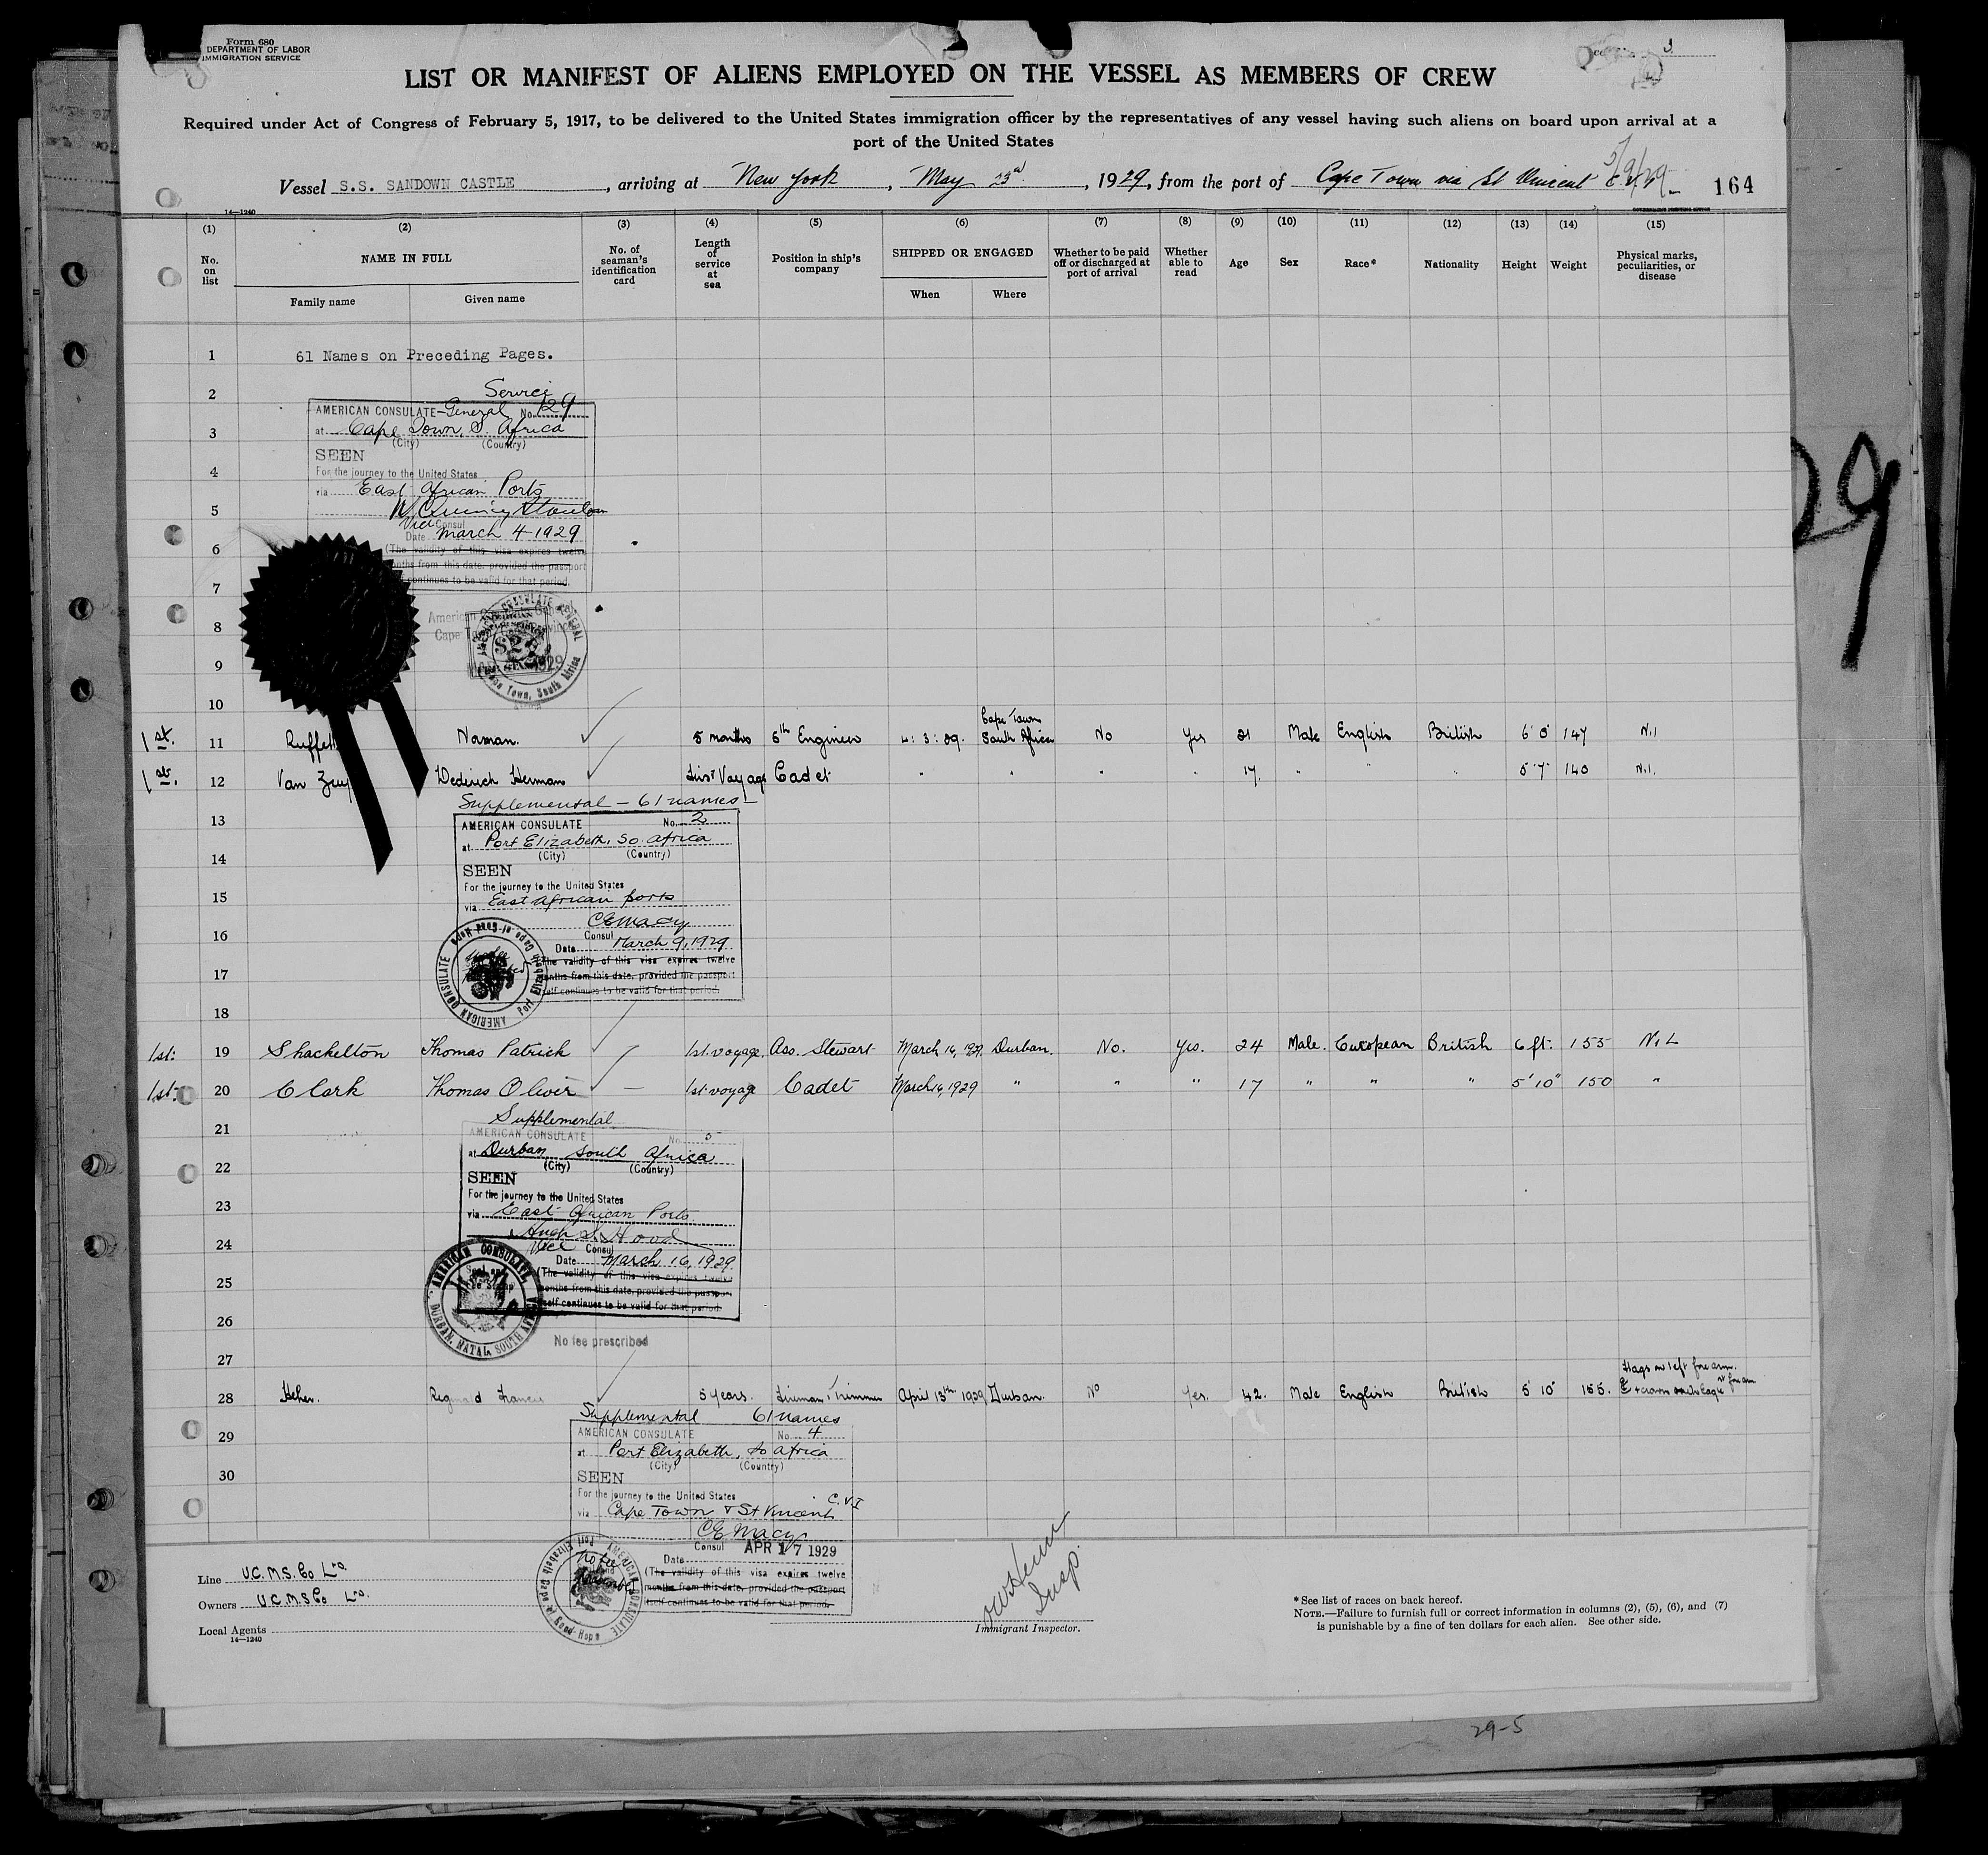 Form 680
DEPARTMENT OF LABOR
IMMIGRATION SERVICE
LIST OR MANIFEST OF ALIENS EMPLOYED ON THE VESSEL AS MEMBERS OF CREW
Required under Act of Congress of February 5, 1917, to be delivered to the United States immigration officer by the representatives of any vessel having such aliens on board upon arrival at a
port of the United States
5/9/29
Vessel S.S. SANDOWN CASTLE, arriving at New York, May 23rd, 1929, from the port of Cape Town via St Vincent 164
14—1240
(1) (2) (3) (4) (5) (6) (7) (8) (9) (10) (11) (12) (13) (14) (15)
No. on list
NAME IN FULL
Family name Given name
No. of seaman's identification card
Length of service at sea
Position in ship's company
SHIPPED OR ENGAGED
When Where
Whether to be paid off or discharged at port of arrival
Whether able to read
Age
Sex
Race*
Nationality
Height
Weight
Physical marks, peculiarities, or disease
1 61 Names on Preceding Pages.
2 Service
AMERICAN CONSULATE-General No. 129
3 at Cape Town, S. Africa
(City) (Country)
SEEN
4 For the journey to the United States
via East African Ports
5
Vice Consul
6 Date March 4 1929
(The validity of this visa expires twelve
months from this date, provided the passport
7 continues to be valid for that period.
8 American Consulate General
Cape Town
9
Cape Town, South Africa
10
Cape Town
1st. 11 Norman. 5 months 5th Engineer 4:3:29. South Africa No Yes 21 Male English British 6'0" 147 Nil
1st. 12 Van Dederich Herman First Voyage Cadet " " " " 17. " " " 5'7" 140 Nil.
Supplemental — 61 names —
13 AMERICAN CONSULATE No. 2
at Port Elizabeth, So. Africa
14 (City) (Country)
SEEN
For the journey to the United States
15 via East African ports
C E Macy
16 Consul
Date March 9, 1929
The validity of this visa expires twelve
17 months from this date, provided the passport
itself continues to be valid for that period.
AMERICAN CONSULATE Port Elizabeth Cape-of-Good Hope
18
1st: 19 Shackelton Thomas Patrick 1st voyage. Ass. Stewart March 16, 1929 Durban. No. Yes. 24 Male. European British 6 ft. 155 NiL
1st: 20 Clark Thomas Oliver — 1st voyage Cadet March 16, 1929 " " " 17 " " " 5'10" 150 "
Supplemental
21 AMERICAN CONSULATE No. 5
at Durban South Africa
22 (City) (Country)
SEEN
For the journey to the United States
23 via East African Ports.
Hugh S. Hood
24 Vice Consul
Date March 16, 1929.
25 (The validity of this visa expires twelve
months from this date, provided the passport
itself continues to be valid for that period.
AMERICAN CONSULATE, DURBAN, NATAL, SOUTH AFRICA
26
No fee prescribed
27
Flags on left fore arm.
28 Reginald Francis 5 years. Fireman Trimmer April 13th 1929 Durban. No Yes. 42. Male English British 5'10" 155.
Supplemental 61 names
29 AMERICAN CONSULATE No. 4
at Port Elizabeth, So Africa
(City) (Country)
30 SEEN
For the journey to the United States
via Cape Town & St Vincent C.V.I
C E Macy
Consul APR 17 1929
Date
(The validity of this visa expires twelve
months from this date, provided the passport
itself continues to be valid for that period.
AMERICAN CONSULATE Port Elizabeth Cape-of-Good-Hope
Line U.C.M.S. Co Ltd.
Owners U.C.M.S Co Ltd.
Local Agents
14—1240
Insp.
Immigrant Inspector.
* See list of races on back hereof.
NOTE.—Failure to furnish full or correct information in columns (2), (5), (6), and (7)
is punishable by a fine of ten dollars for each alien. See other side.
29-5
29